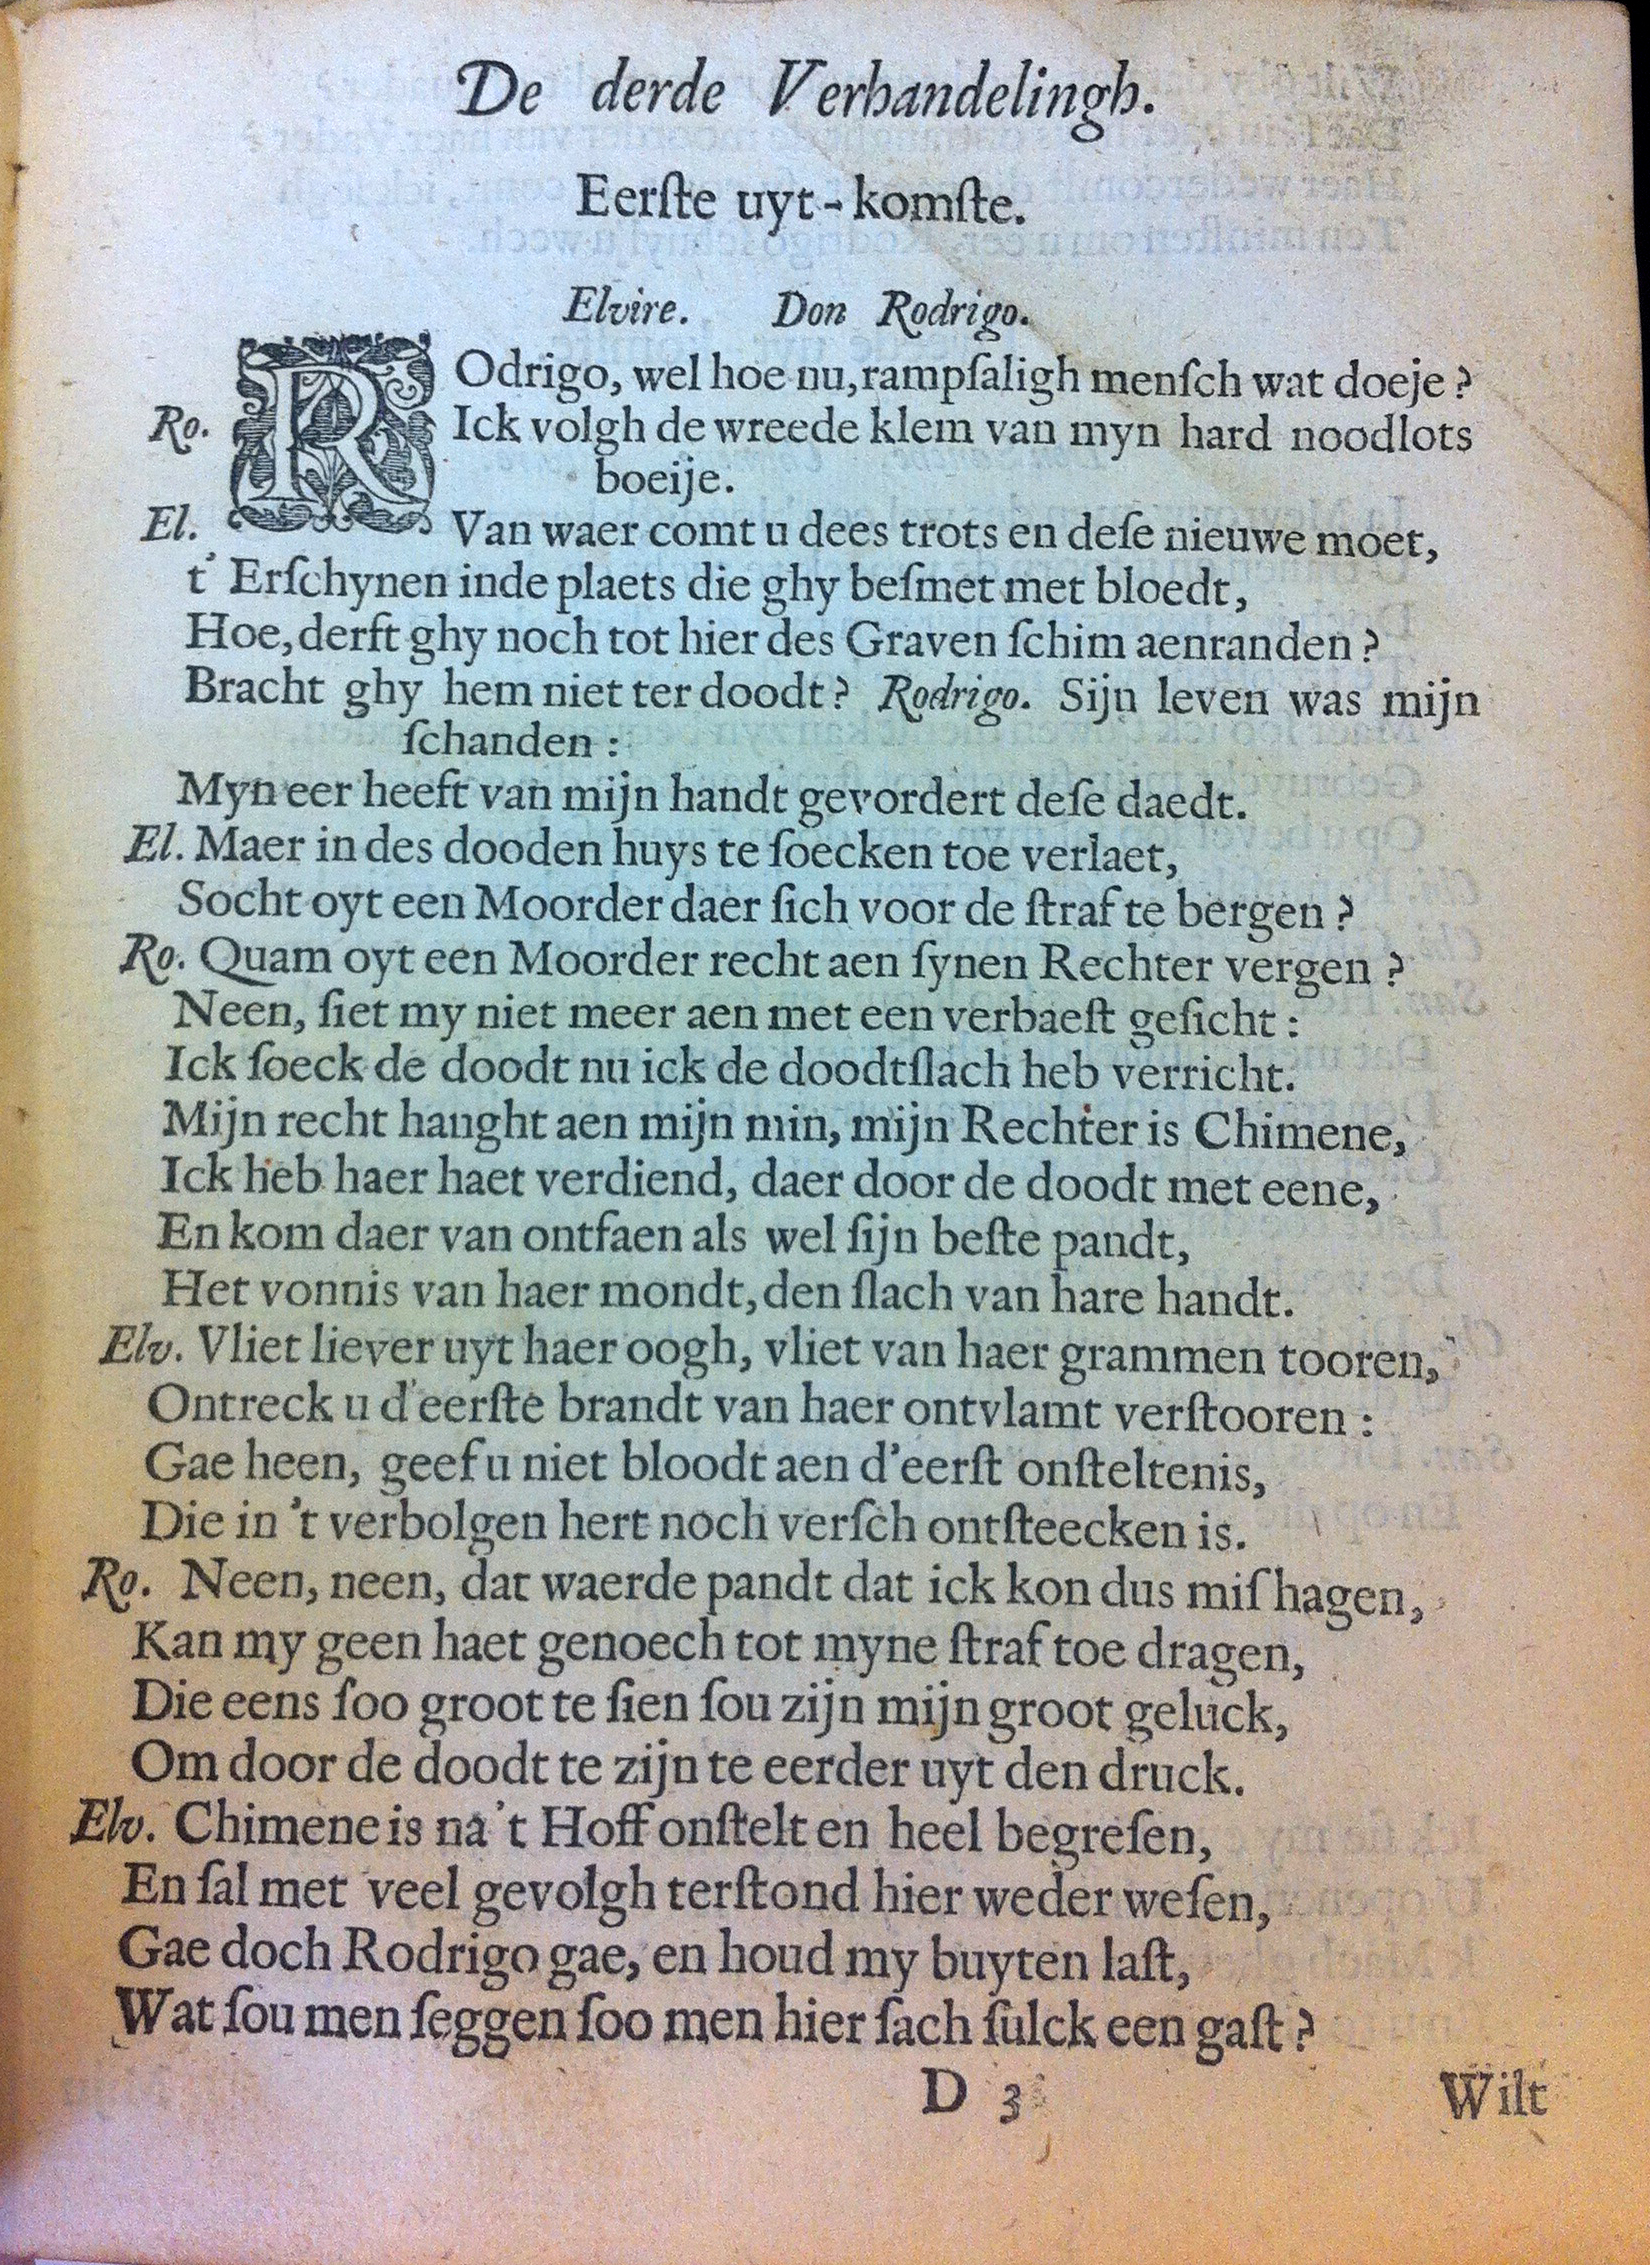 De derde Verhandelingh.
Eerſte uyt-komſte.
Elvire. Don Rodrigo.
ROdrigo, wel hoe nu, rampſaligh menſch wat doeje?
Ro. Ick volgh de wreede klem van myn hard noodlots
boeije.
El. Van waer comt u dees trots en deſe nieuwe moet,
t' Erſchynen inde plaets die ghy beſmet met bloedt,
Hoe, derft ghy noch tot hier des Graven ſchim aenranden?
Bracht ghy hem niet ter doodt? Rodrigo. Sijn leven was mijn
ſchanden:
Myn eer heeft van mijn handt gevordert deſe daedt.
El. Maer in des dooden huys te ſoecken toe verlaet,
Socht oyt een Moorder daer ſich voor de ſtraf te bergen?
Ro. Quam oyt een Moorder recht aen ſynen Rechter vergen?
Neen, ſiet my niet meer aen met een verbaeſt geſicht:
Ick ſoeck de doodt nu ick de doodtſlach heb verricht.
Mijn recht hanght aen mijn min, mijn Rechter is Chimene,
Ick heb haer haet verdiend, daer door de doodt met eene,
En kom daer van ontfaen als wel ſijn beſte pandt,
Het vonnis van haer mondt, den ſlach van hare handt.
Elv. Vliet liever uyt haer oogh, vliet van haer grammen tooren,
Ontreck u d'eerſte brandt van haer ontvlamt verſtooren:
Gae heen, geef u niet bloodt aen d'eerſt onſteltenis,
Die in 't verbolgen hert noch verſch ontſteecken is.
Ro. Neen, neen, dat waerde pandt dat ick kon dus miſhagen,
Kan my geen haet genoech tot myne ſtraf toe dragen,
Die eens ſoo groot te ſien ſou zijn mijn groot geluck,
Om door de doodt te zijn te eerder uyt den druck.
Elv. Chimene is na 't Hoff onſtelt en heel begreſen,
En ſal met veel gevolgh terſtond hier weder weſen,
Gae doch Rodrigo gae, en houd my buyten laſt,
Wat ſou men ſeggen ſoo men hier ſach ſulck een gaſt?
D 3 Wilt